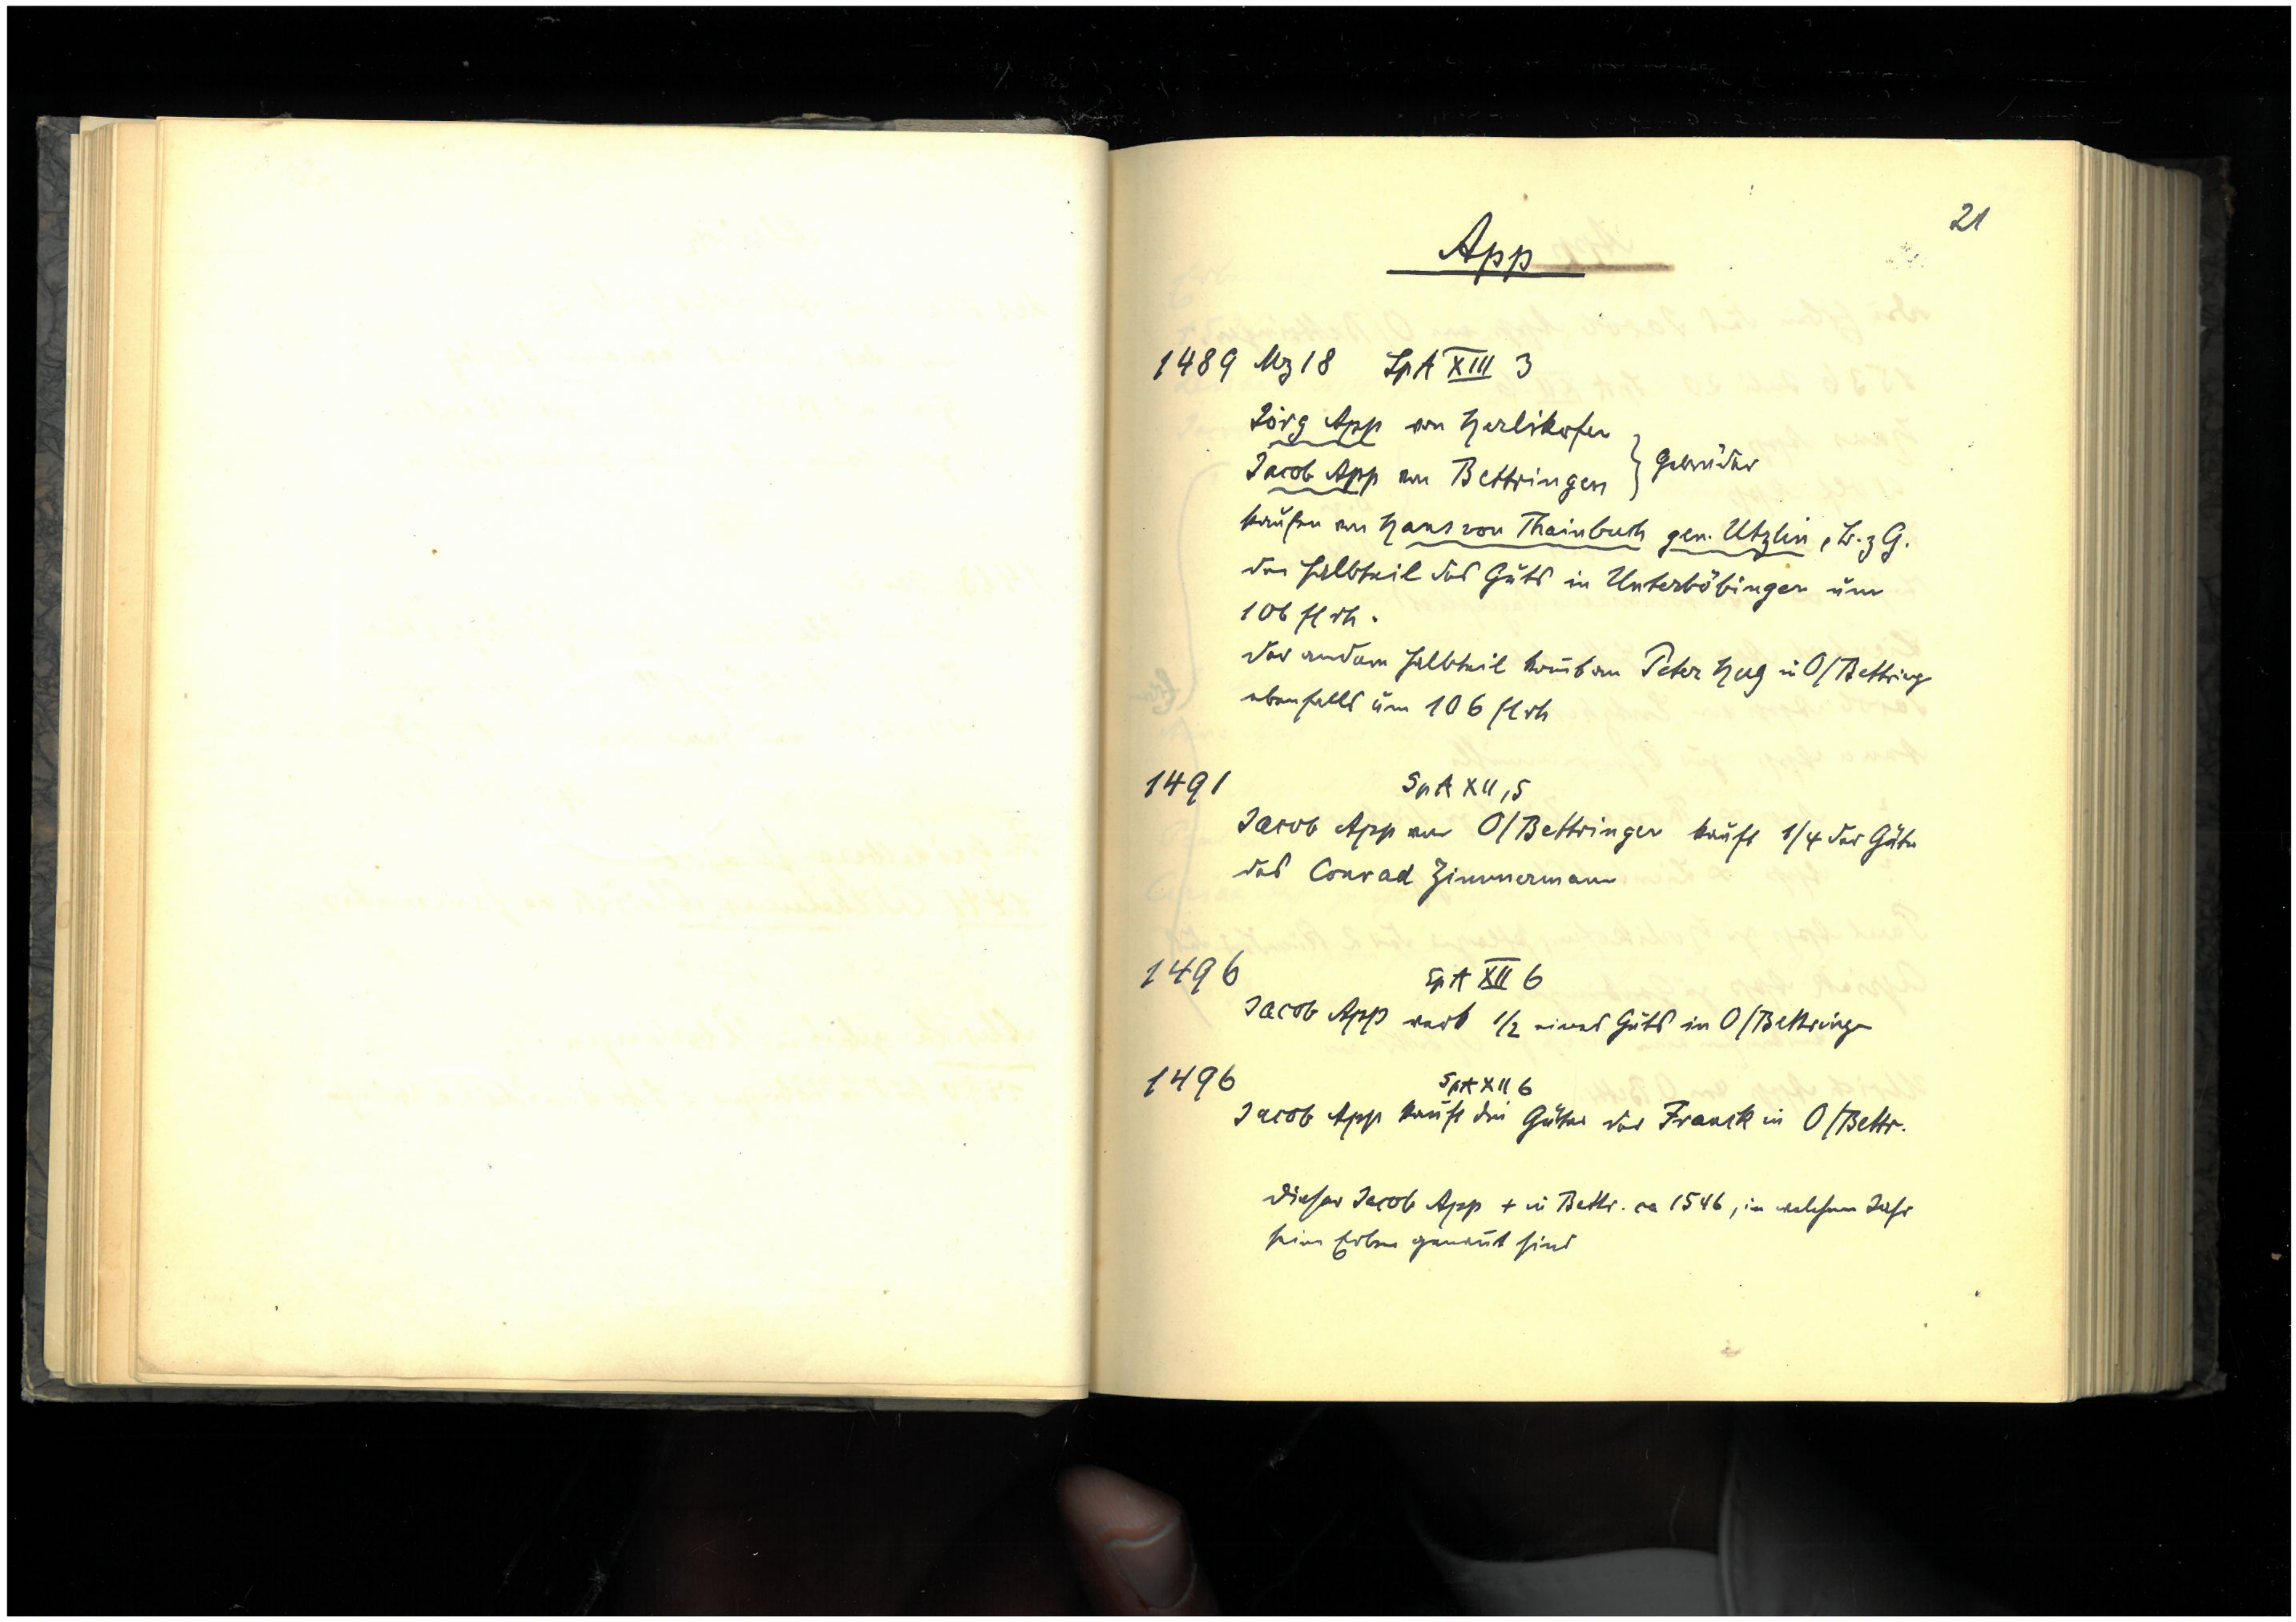 21
App
1489 Mz 18 SpA XIII 3
Jörg App von Herlikofen
Jacob App von Bettringen } Gebrüder
kaufen von Hans von Thainbuch gen. Utzlin, B. z G.
den Halbteil des Guts in Unterböbingen um
106 fl rh.
Der andere Halbteil kommt an Peter Hug in O/Bettring
ebenfalls um 106 fl rh
1491 SpA XII, 5
Jacob App von O/Bettringen kauft 1/4 der Güter
des Conrad Zimmermann
1496 SpA XII 6
Jacob App 1/2 eines Guts in O/Bettringen
1496 SpA XII 6
Jacob App kauft die Güter der Franck in O/Bettr.
Dieser Jacob App + in Bettr. ca 1546, in welchem Jahr
seine Erben genannt sind